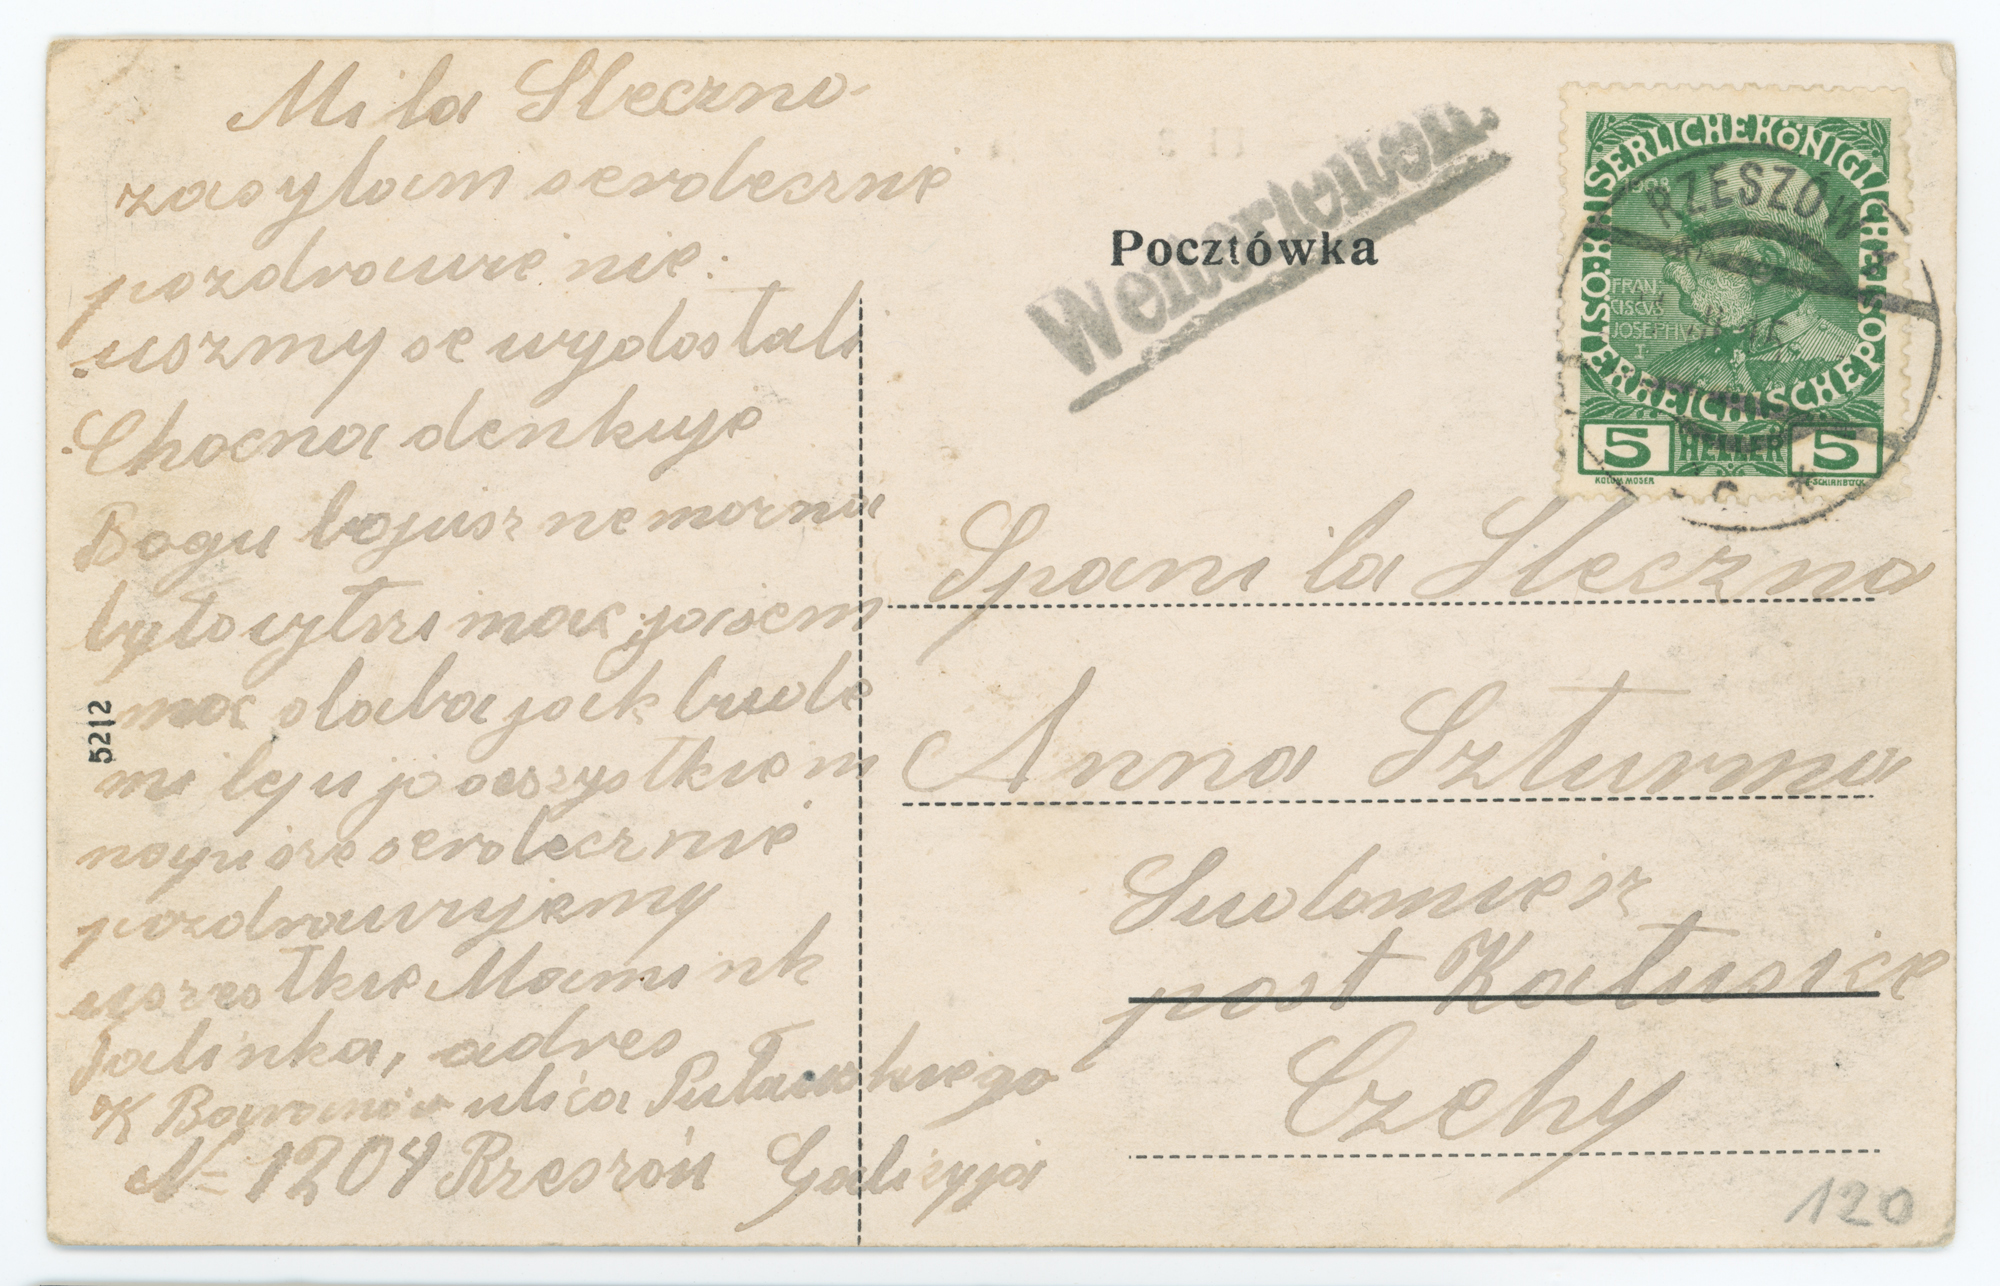 Mila Sleczno
zasylam serdeczne
pozdrawienie.
uszmy se wydostali
Chocna denkuje
Bogu bojusz nemozna
byto wytrzimac jasem
moc slaba jak bude
mi lep u jo wszystkiem
napisze serdecznie
pozdrawujemy
wszestkie Mamink
Talinka, adres
K Baranów ulica Pułaskiego
№ 1204 Rzeszów Galicyja
5212
Pocztówka
Weiterleiten.
KAISERLICHE KÖNIGLICHE ÖSTERREICHISCHE POST
1908
FRAN
CISCVS
JOSEPHVS
I
5 HELLER 5
KOLOM. MOSER
F. SCHIRNBÖCK
RZESZÓW
c *
Spanila Sleczna
Anna Szturma
Sudomiesz
post Katusice
Czehy
120